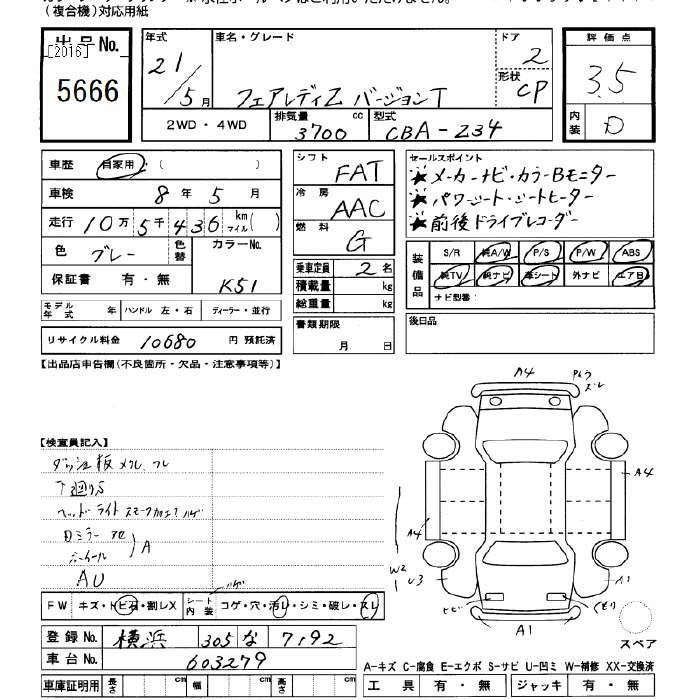 (複合機)対応用紙
出品No.
[2016]
5666
年式
21/5月
車名・グレード
フェアレディZ バージョンT
ドア
2
形状
CP
2WD・4WD
排気量
3700 cc
型式
CBA-Z34
評価点
3.5
内装
D
車歴 自家用 ( )
車検 8年5月
走行 10万5千436 km マイル( )
色 グレー
色替
カラーNo.
K51
保証書 有・無
モデル年式 年
ハンドル 左・右
ディーラー・並行
リサイクル料金 10680 円 預託済
シフト FAT
冷房 AAC
燃料 G
乗車定員 2名
積載量 kg
総重量 kg
書類期限
月 日
セールスポイント
★メーカーナビ・カラーBモニター
★パワーシート・シートヒーター
★前後ドライブレコーダー
装備品
S/R 純A/W P/S P/W ABS
純TV 純ナビ 革シート 外ナビ エアB
ナビ型番:
後日品
【出品店申告欄(不良箇所・欠品・注意事項等)】
【検査員記入】
ダッシュ板 メクレ、ワレ
下廻りS
ヘッドライト スモーク加工? ハゲ
Dミラー
ホイール
A
AU
FW キズ・トビ石・割レX
シート内装 コゲ・穴・汚レ・シミ・破レ・スレ
ハゲ
登録No. 横浜 305 な 7192
車台No. 603279
車庫証明用 長さ cm 幅 cm 高さ cm
A4
A4
A4
W2
U3
A1
トビ
くもり
A1
スペア
A-キズ C-腐食 E-エクボ S-サビ U-凹ミ W-補修 XX-交換済
工具 有・無 ジャッキ 有・無